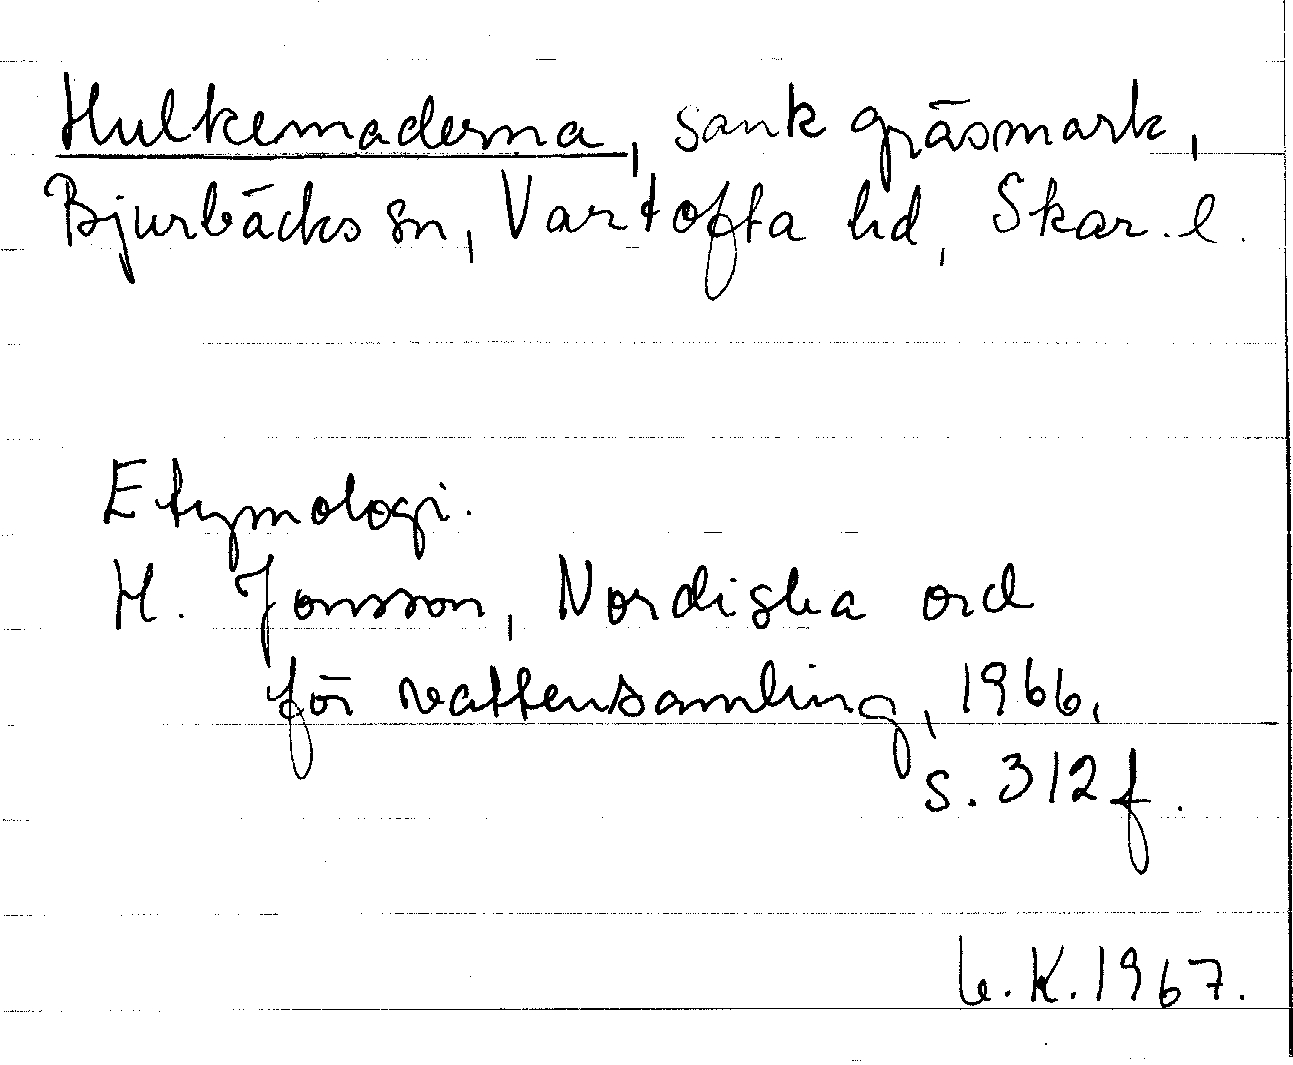 Hulkemaderna, sank gräsmark,
Bjurbäcks sn, Vartofta hd, Skar. l.
Etymologi.
H. Jonsson, Nordiska ord
för vattensamling, 1966,
s. 312 f.
K. 1967.